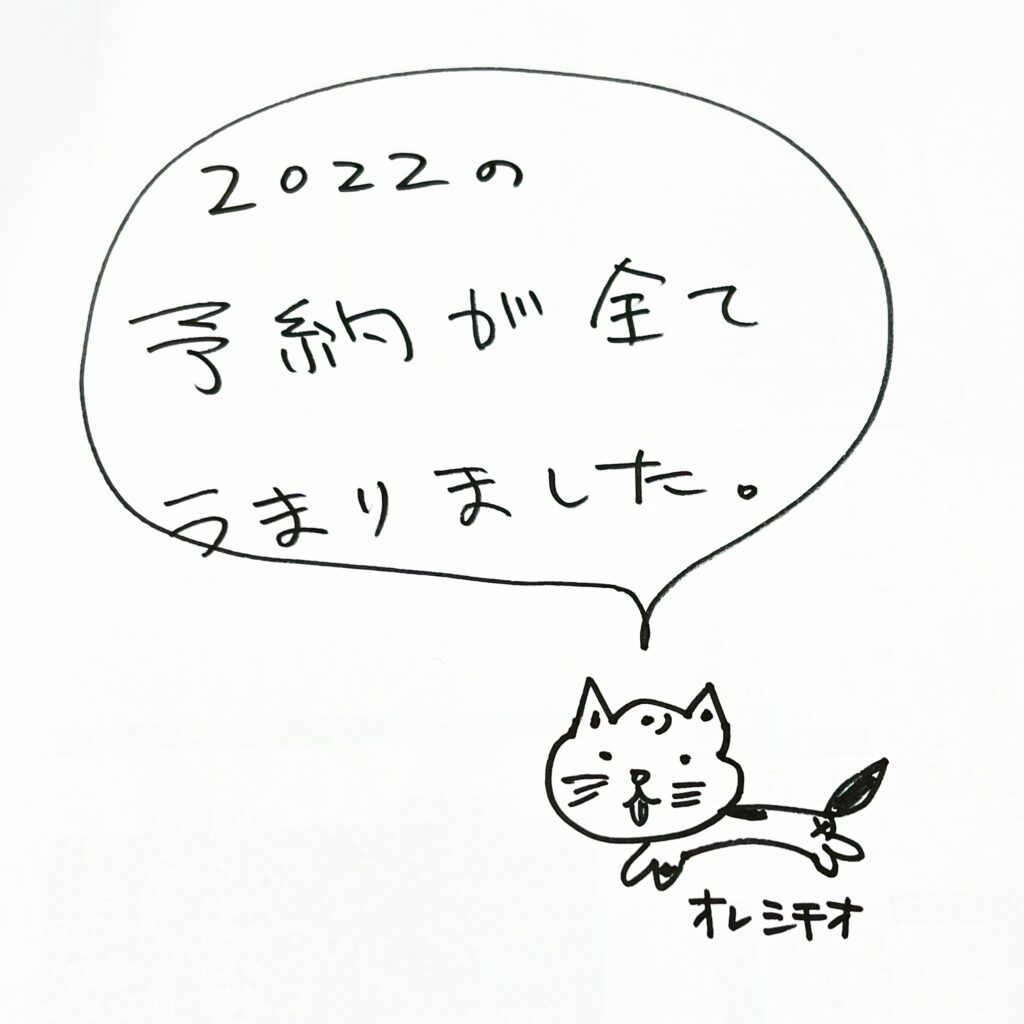 2022の
予約が全て
うまりました。
オレミチオ